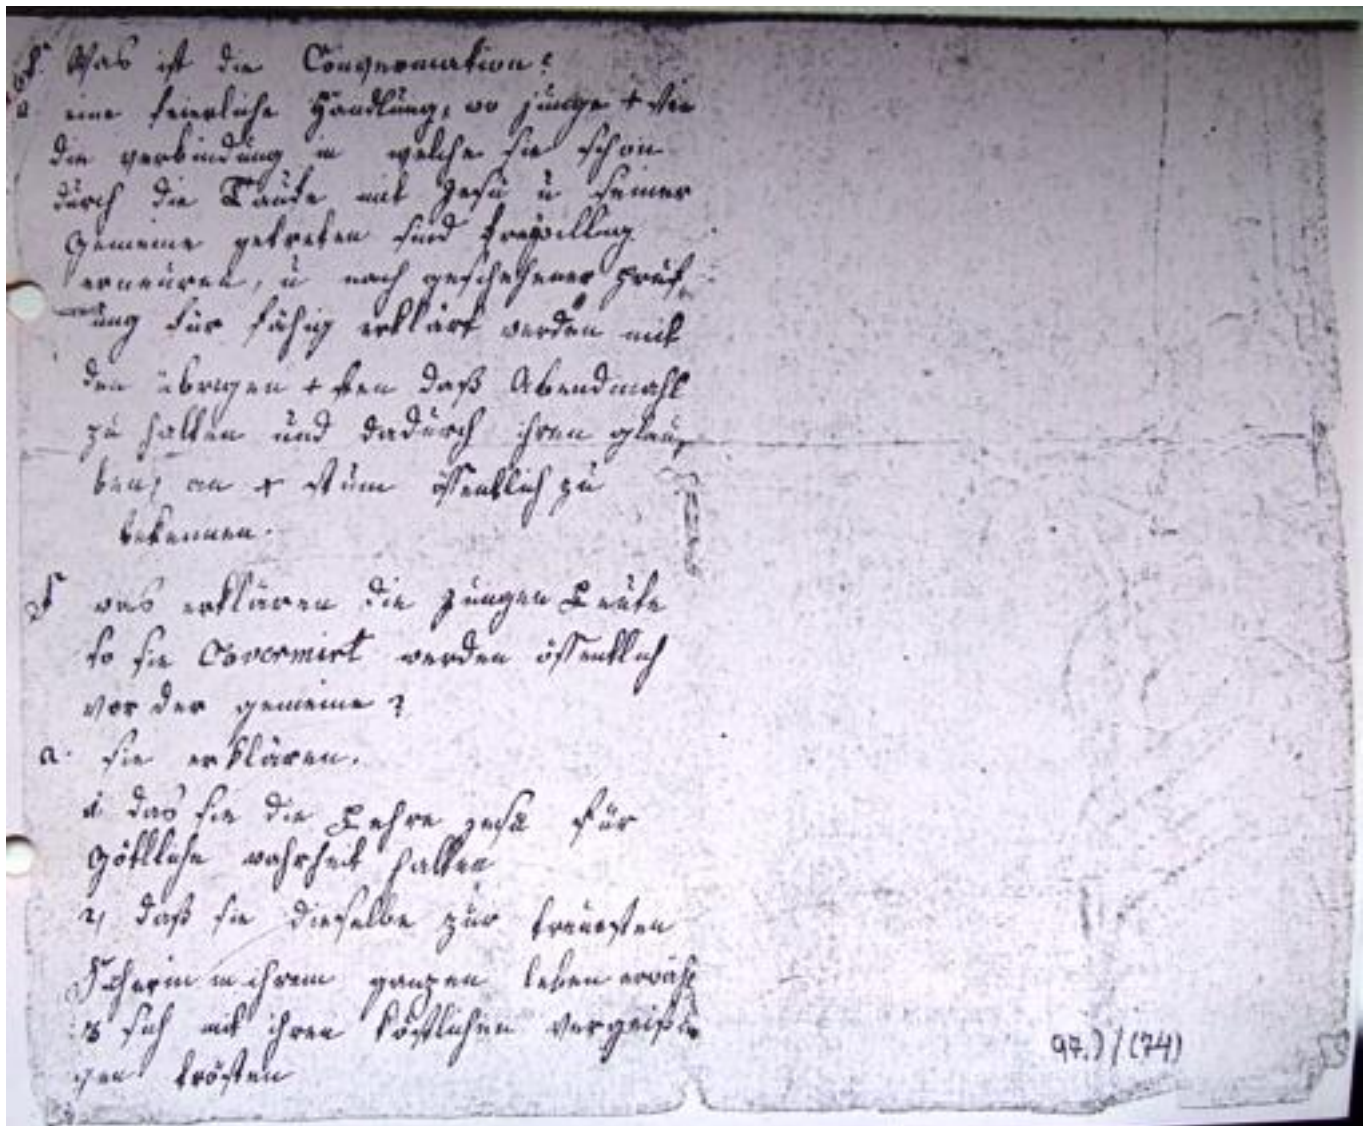 f. Was ist die Convermation?
a eine feierliche Handlung, wo junge + sten
die verbindung in welche sie schon
durch die Taufe mit Jesu ü seiner
gemeine getreten sind freywillig
erneuren, ü nach geschehener prüf
ung für fähig erklärt werden mit
den übrigen + sten daß Abendmahl
zu halten und dadurch ihren glau
ben an + stum öffentlich zu
bekennen.
f was erklären die jungen Leute
so sie Covermirt werden öffentlich
vor der gemeine?
a. sie erklären.
1. das sie die Lehre jesu für
göttliche wahrheit halten
2, daß sie dieselbe zur treuesten
in ihrem ganzen leben erwähl
3 sich mit ihren köstlichen
gen trösten
97.) / (74)